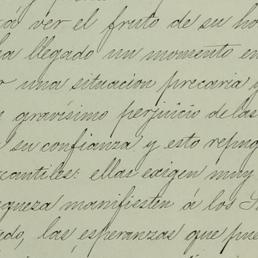 á ver el fruto de su ho
ha llegado un momento en
r una situacion precaria y
gravísimo perjuicio de las
su confianza y esto repug
cantiles: ellas exigen muy
queza manifiesten á los S
do, las esperanzas que pue